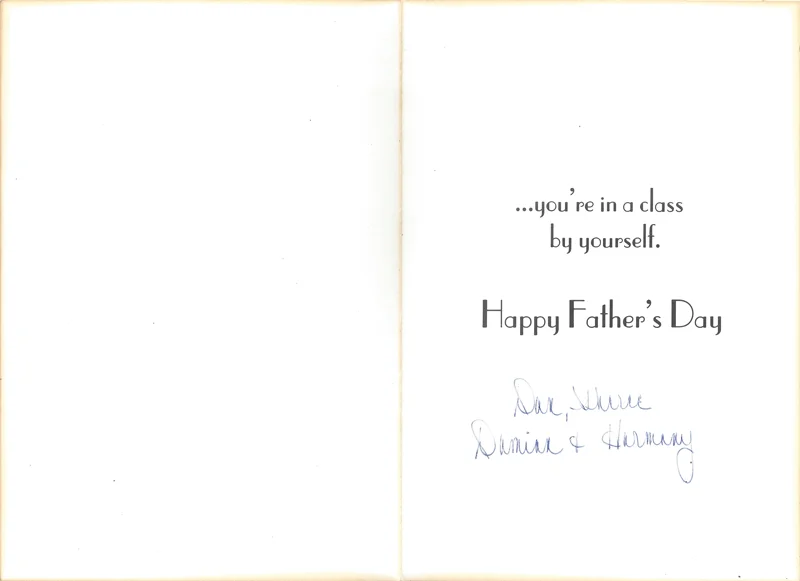 ...you're in a class
by yourself.
Happy Father's Day
Damian & Harmony